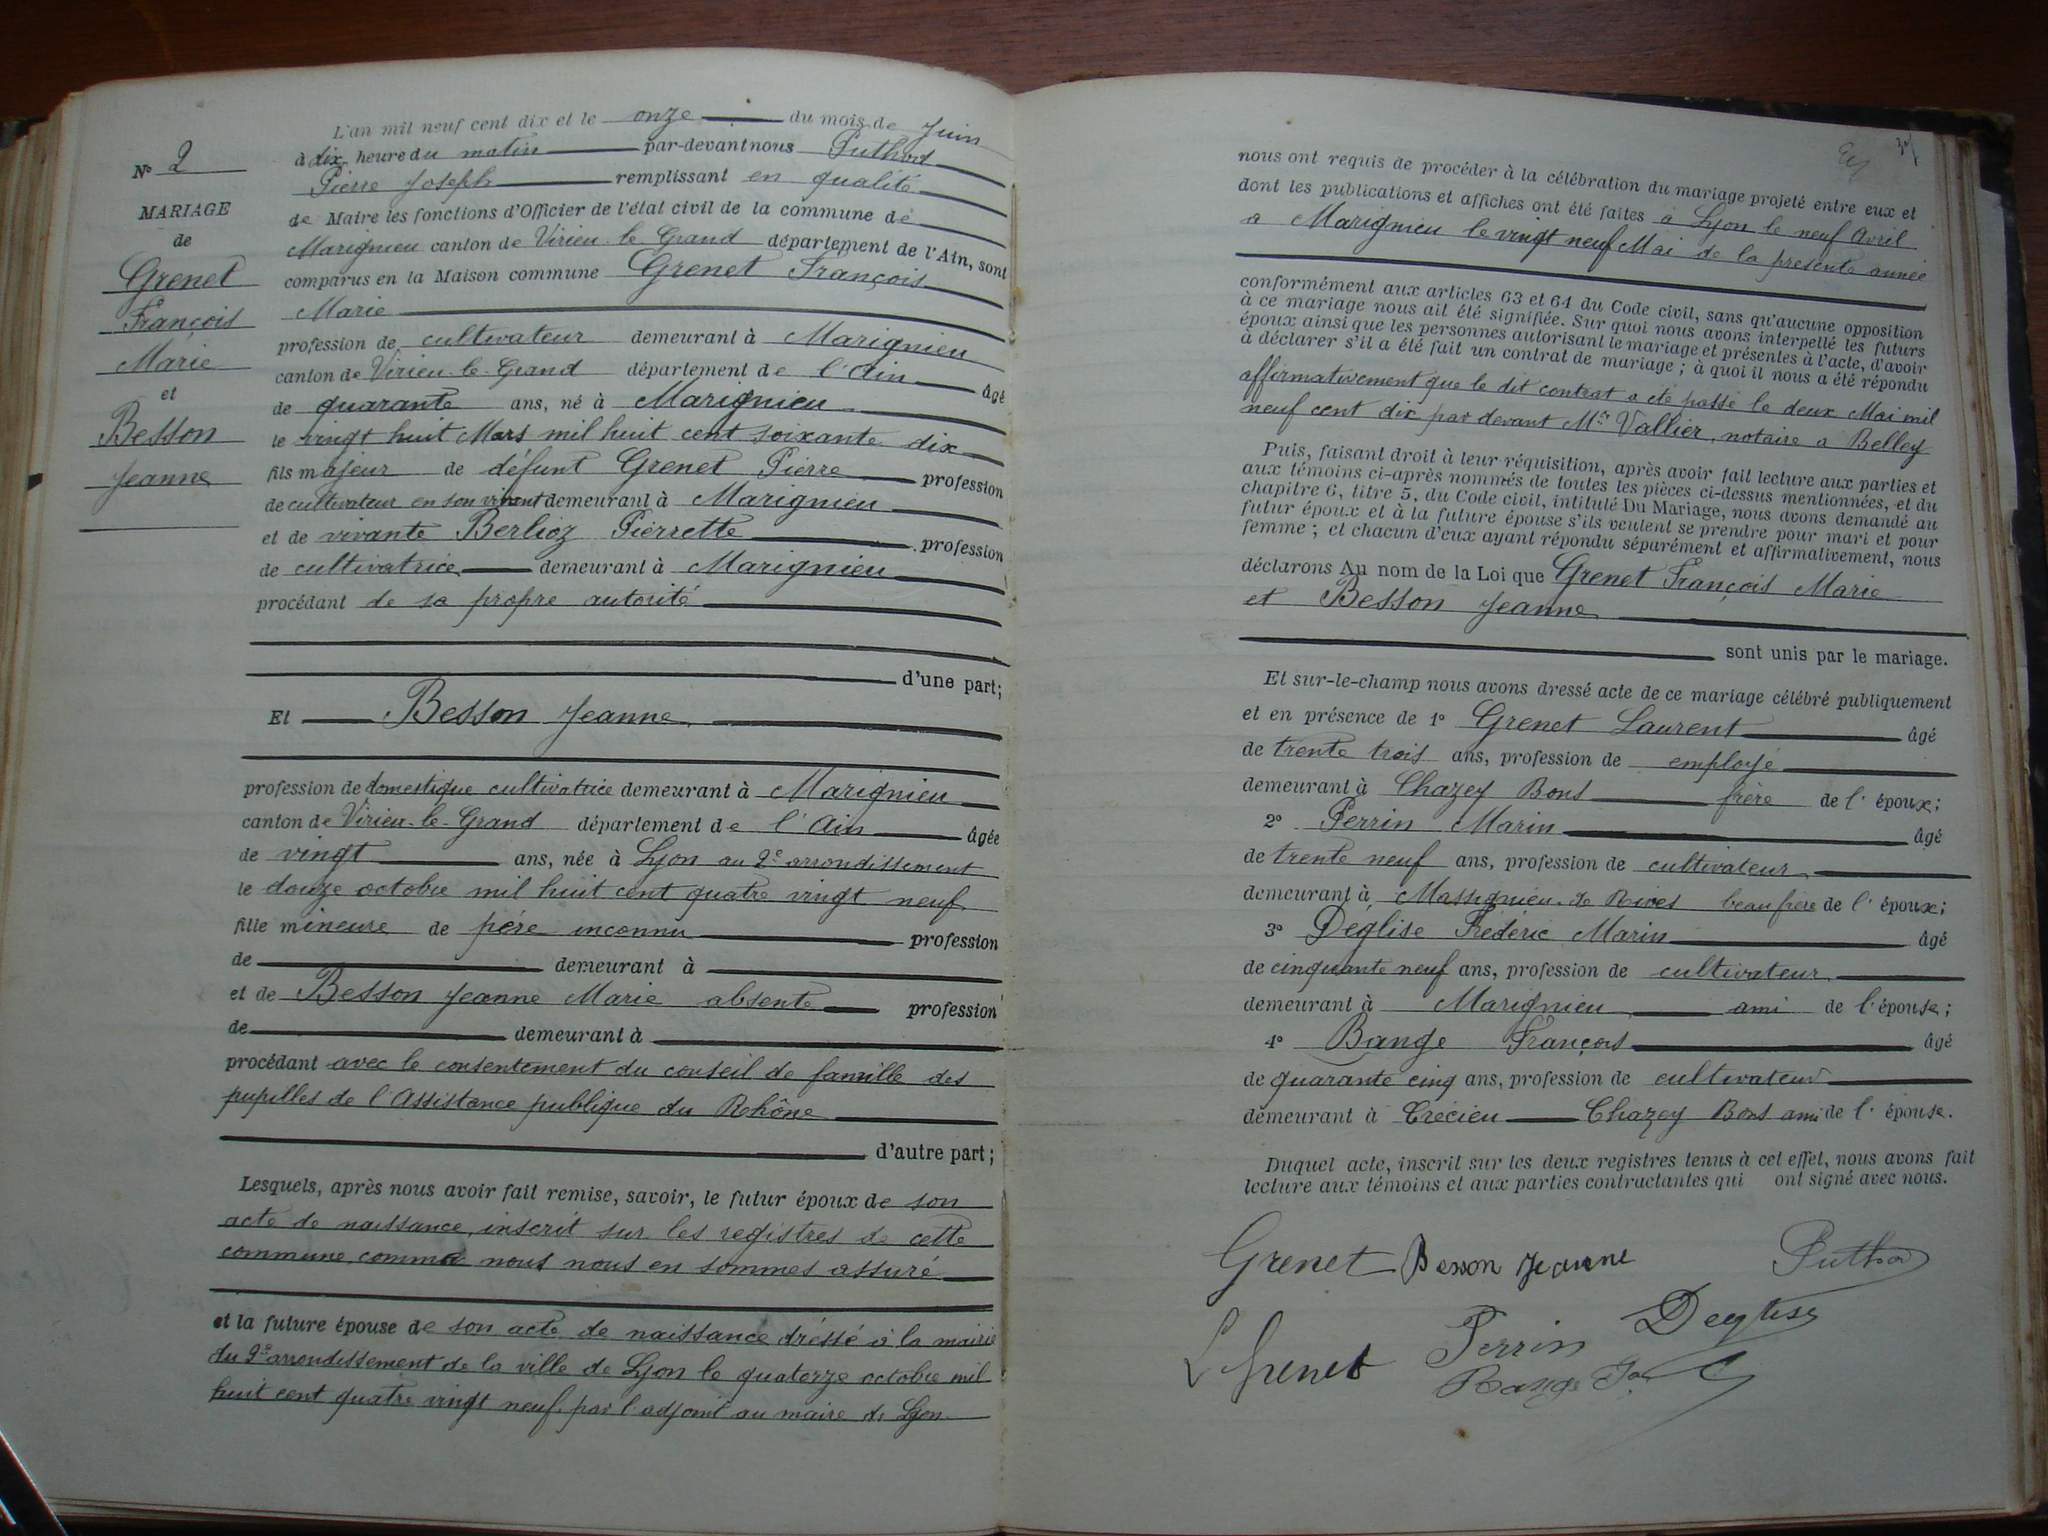 N° 2
MARIAGE
de
Grenet
François
Marie
et
Besson
Jeanne
L'an mil neuf cent dix et le onze du mois de Juin
à dix heure du matin par-devant nous Puthod
Pierre Joseph remplissant en qualité
de Maire les fonctions d'Officier de l'état civil de la commune de
Marignieu canton de Virieu-le-Grand département de l'Ain, sont
comparus en la Maison commune Grenet François
Marie
profession de cultivateur demeurant à Marignieu
canton de Virieu-le-Grand département de l'Ain âgé
de quarante ans, né à Marignieu
le vingt huit Mars mil huit cent soixante dix
fils majeur de défunt Grenet Pierre profession
de cultivateur en son vivant demeurant à Marignieu
et de vivante Berlioz Pierrette profession
de cultivatrice demeurant à Marignieu
procédant de sa propre autorité
d'une part;
Et Besson Jeanne
profession de domestique cultivatrice demeurant à Marignieu
canton de Virieu-le-Grand département de l'Ain âgée
de vingt ans, née à Lyon au 2e arrondissement
le douze octobre mil huit cent quatre vingt neuf
fille mineure de père inconnu profession
de demeurant à
et de Besson Jeanne Marie absente profession
de demeurant à
procédant avec le consentement du conseil de famille des
pupilles de l'Assistance publique du Rhône
d'autre part;
Lesquels, après nous avoir fait remise, savoir, le futur époux de son
acte de naissance, inscrit sur les registres de cette
commune, comme nous nous en sommes assuré
et la future épouse de son acte de naissance dréssé à la mairie
du 2e arrondissement de la ville de Lyon le quatorze octobre mil
huit cent quatre vingt neuf par l'adjoint au maire de Lyon
nous ont requis de procéder à la célébration du mariage projeté entre eux et
dont les publications et affiches ont été faites à Lyon le neuf Avril
a Marignieu le vingt neuf Mai de la présente année
conformément aux articles 63 et 64 du Code civil, sans qu'aucune opposition
à ce mariage nous ait été signifiée. Sur quoi nous avons interpellé les futurs
époux ainsi que les personnes autorisant le mariage et présentes à l'acte, d'avoir
à déclarer s'il a été fait un contrat de mariage; à quoi il nous a été répondu
affirmativement que le dit contrat a été passé le deux Mai mil
neuf cent dix par devant Me Vallier, notaire a Belley
Puis, faisant droit à leur réquisition, après avoir fait lecture aux parties et
aux témoins ci-après nommés de toutes les pièces ci-dessus mentionnées, et du
chapitre 6, titre 5, du Code civil, intitulé Du Mariage, nous avons demandé au
futur époux et à la future épouse s'ils veulent se prendre pour mari et pour
femme; et chacun d'eux ayant répondu séparément et affirmativement, nous
déclarons Au nom de la Loi que Grenet François Marie
et Besson Jeanne
sont unis par le mariage.
Et sur-le-champ nous avons dressé acte de ce mariage célébré publiquement
et en présence de 1° Grenet Laurent âgé
de trente trois ans, profession de employé
demeurant à Chazey Bons frère de l'époux;
2° Perrin Marin âgé
de trente neuf ans, profession de cultivateur
demeurant à Massignieu-de Rives beau frère de l'époux;
3° Déglise Frédéric Marin âgé
de cinquante neuf ans, profession de cultivateur
demeurant à Marignieu ami de l'épouse;
4° Bange François âgé
de quarante cinq ans, profession de cultivateur
demeurant à Crécieu Chazey Bons ami de l'épouse.
Duquel acte, inscrit sur les deux registres tenus à cet effet, nous avons fait
lecture aux témoins et aux parties contractantes qui ont signé avec nous.
Grenet Besson Jeanne Puthod
L Grenet Perrin Deglise
Bange